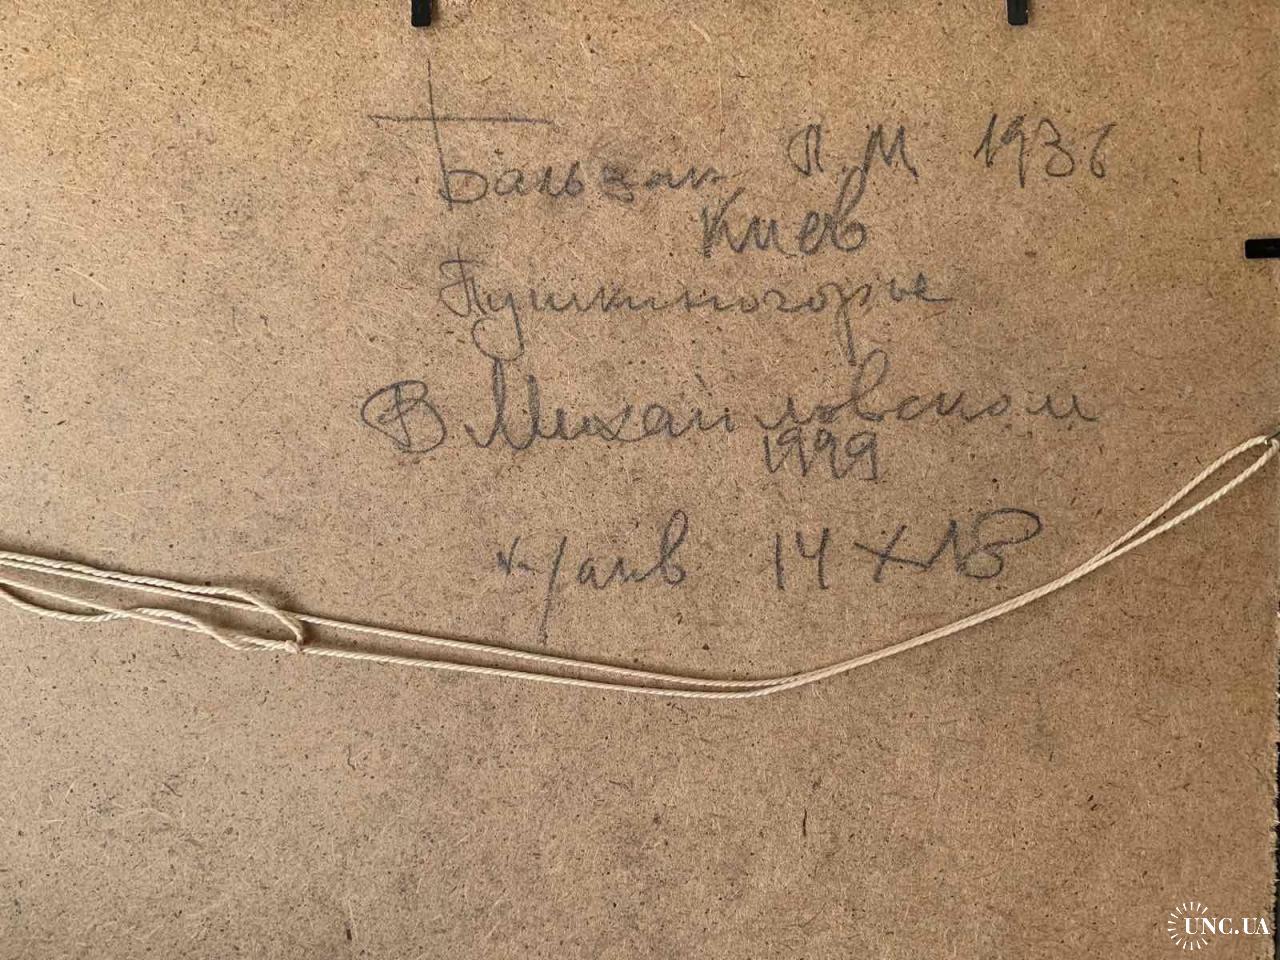 Бальзак П.М 1936
Киев
Пушкиногорье
В Михайловском
1999
14 х
UNC.UA